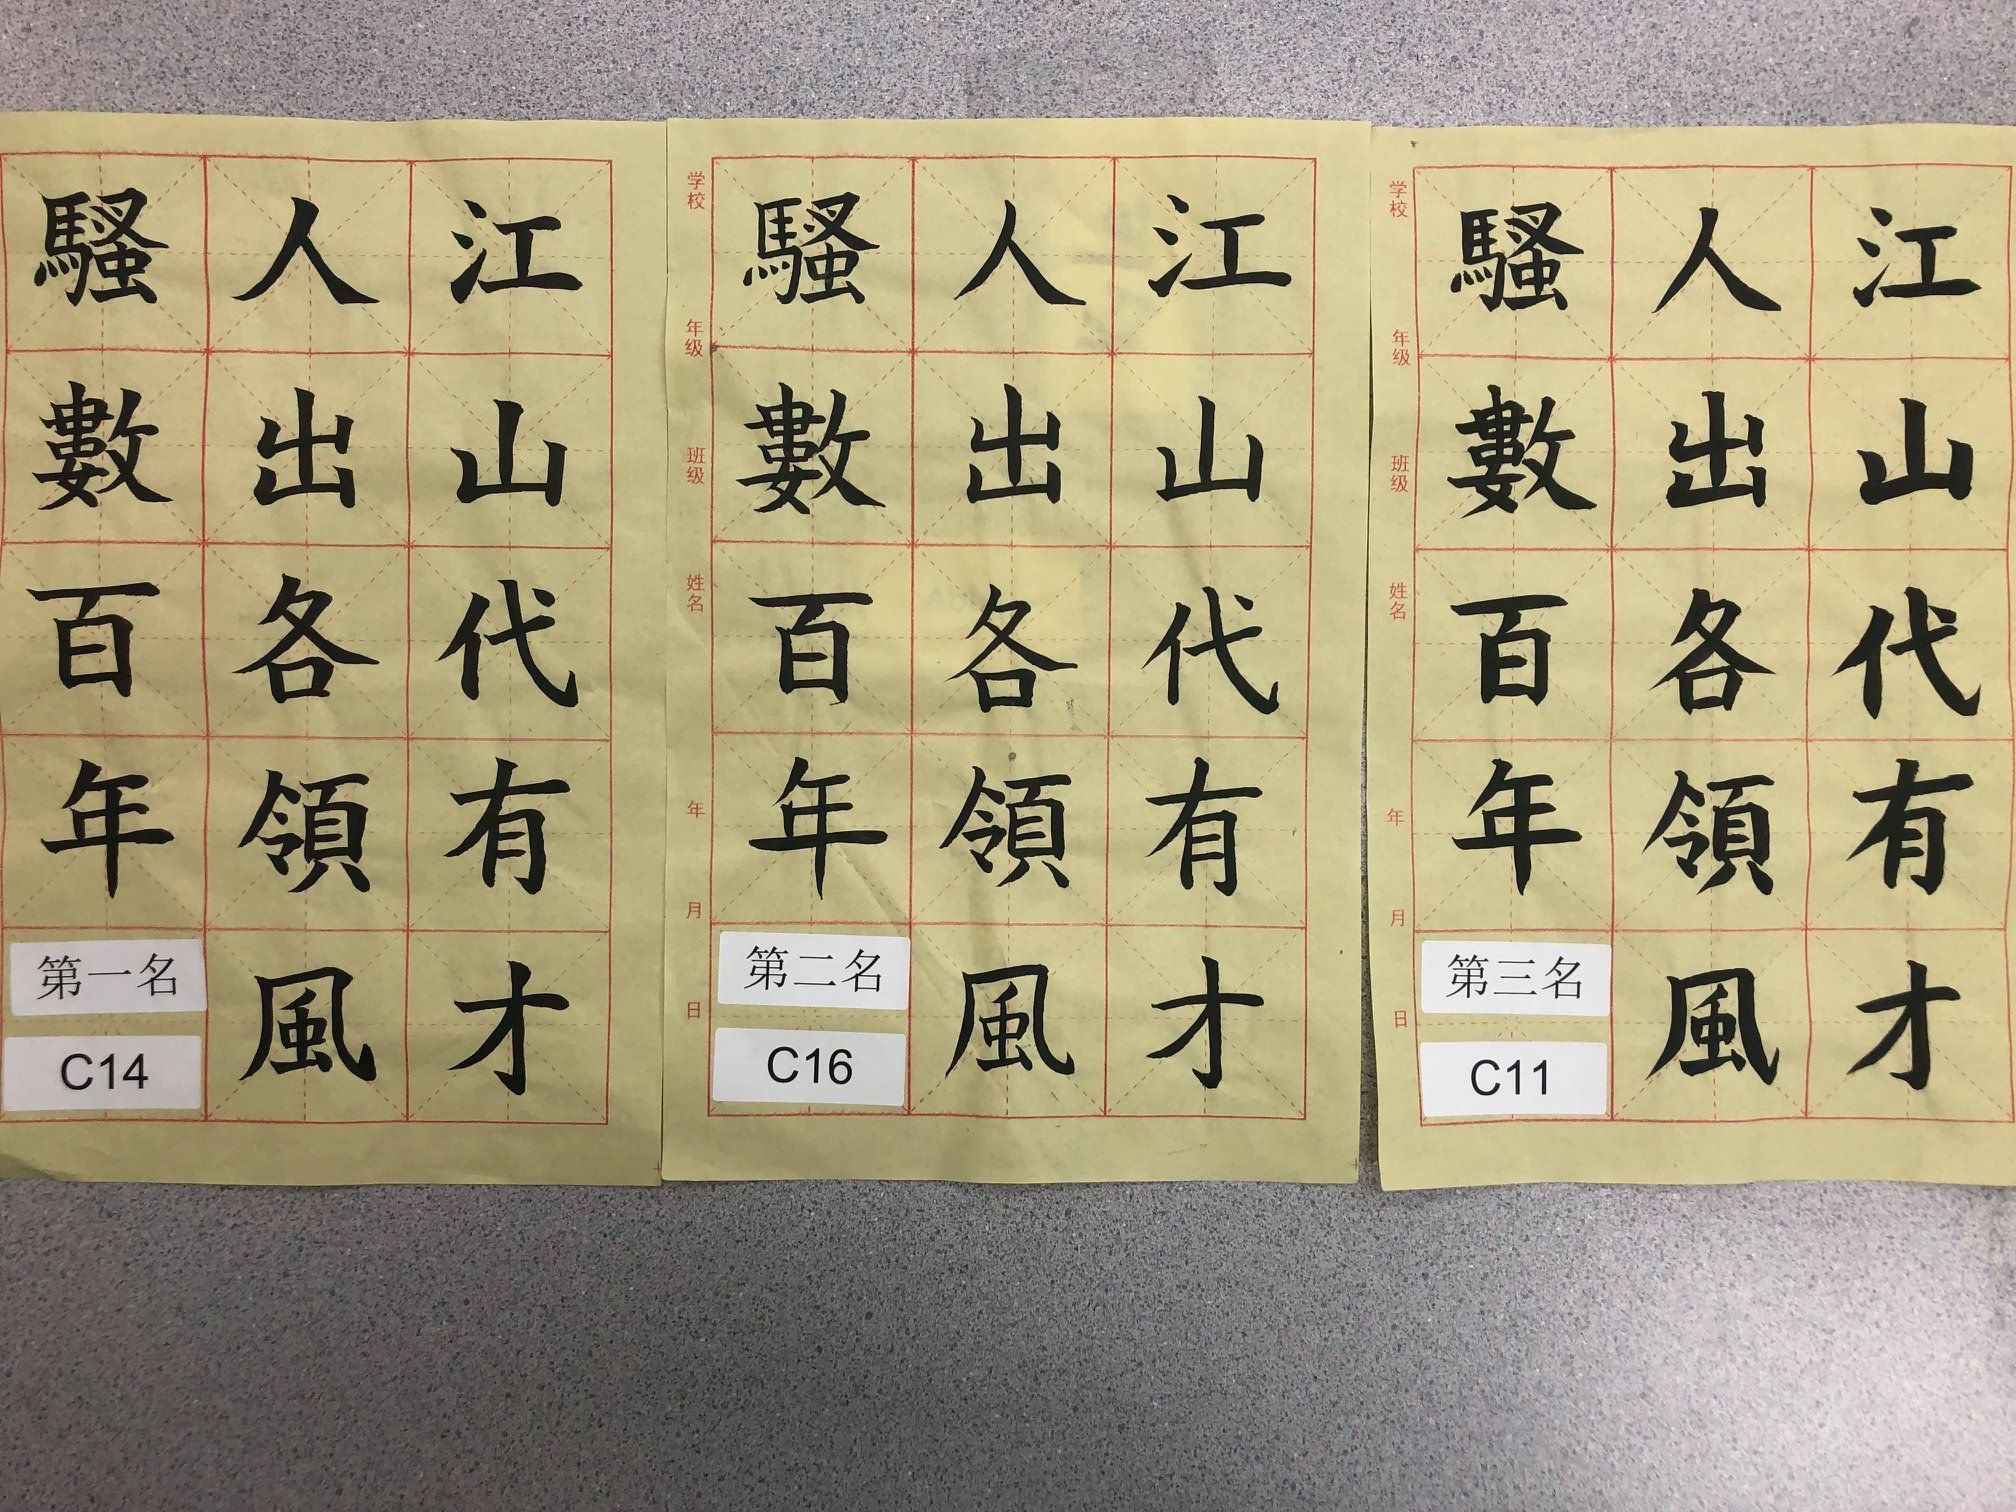 江山代有才
人出各領風
騷數百年
第一名
C14
江山代有才
人出各領風
騷數百年
第二名
C16
学校 年级 班级 姓名 年 月 日
江山代有才
人出各領風
騷數百年
第三名
C11
学校 年级 班级 姓名 年 月 日